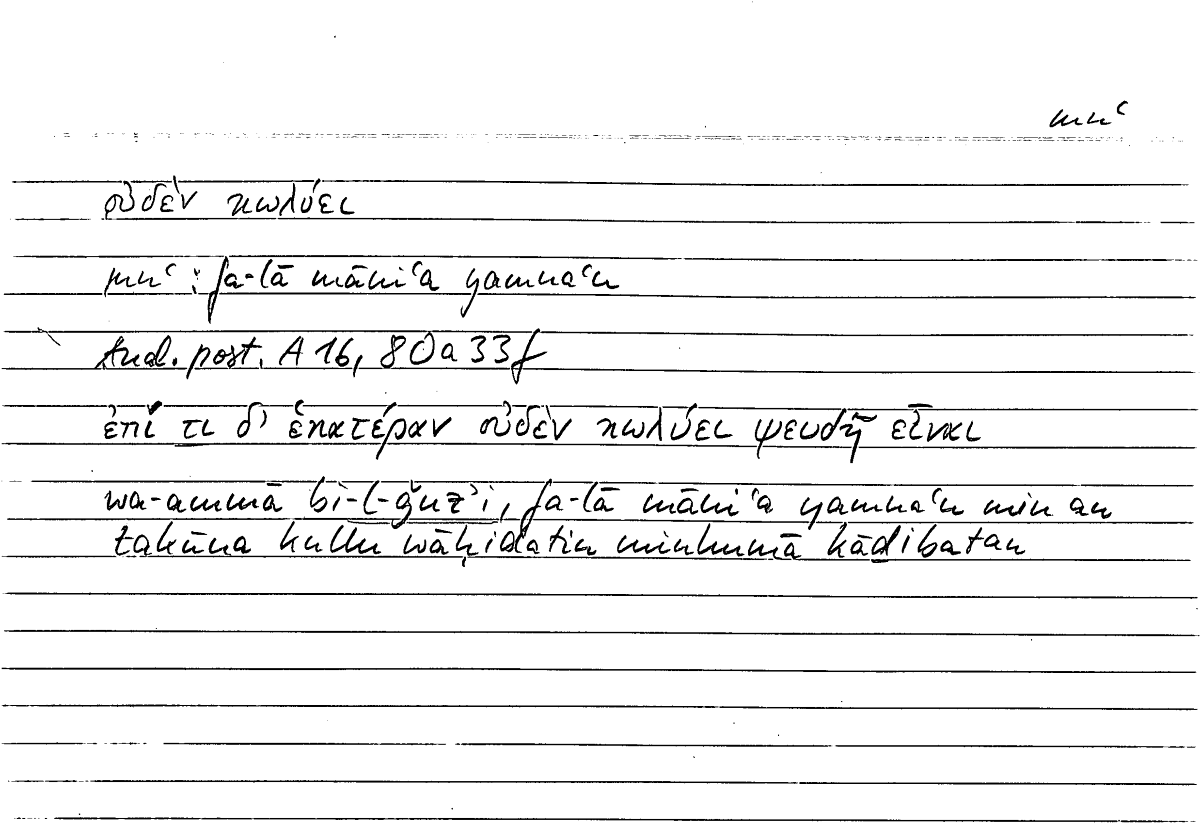 mnʿ
οὐδὲν κωλύει
mnʿ : fa-lā māniʿa yamnaʿu
Anal. post. A 16, 80a33f
ἐπί τι δ' ἑκατέραν οὐδὲν κωλύει ψευδῆ εἶναι
wa-ammā bi-l-ǧuzʾi, fa-lā māniʿa yamnaʿu min an
takūna kullu wāḥidatin minhumā kāḏibatan